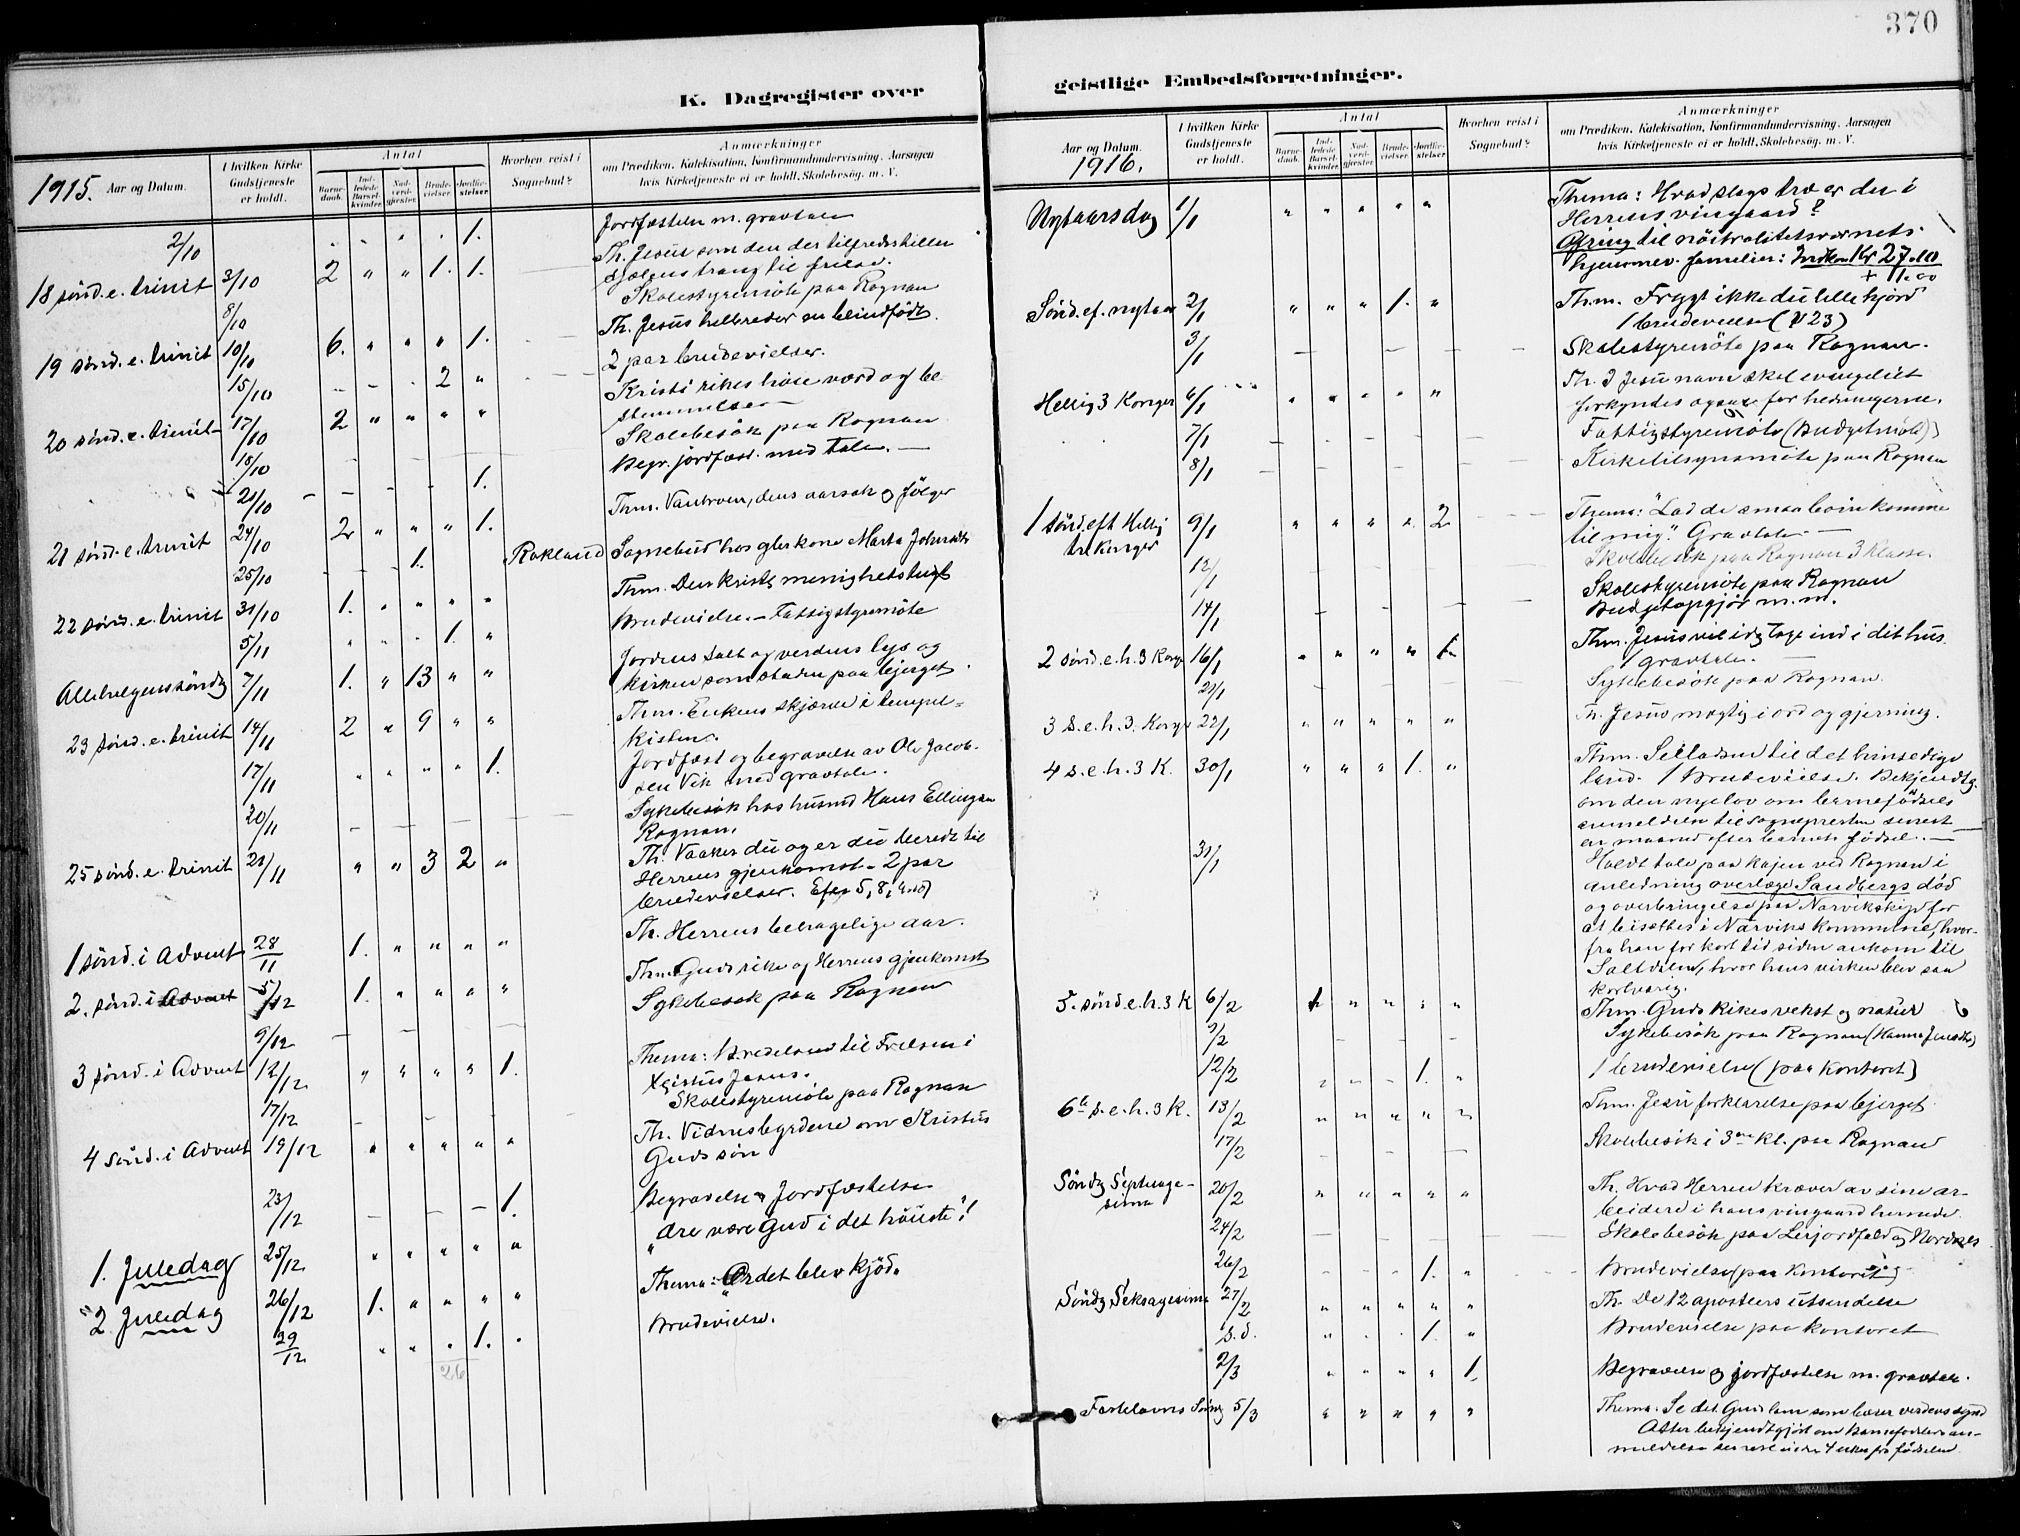 370
K. Dagregister over
1915. Aar og Datum.
I hvilken Kirke Gudstjeneste er holdt.
Antal
Barnedaab.
Indledede Barselkvinder.
Nadverdgjester.
Brudevielser.
Jordfæstelser.
Hvorhen reist i Sognebud?
Anmærkninger
om Prædiken, Katekisation, Konfirmandundervisning. Aarsagen
hvis Kirketjeneste ei er holdt. Skolebesøg. m. V.
2/10 " " " " 1. Jordfæstelse m. gravtale
18 sønd. e. trinit 3/10 2 " " 1. 1. Th. Jesus som den der tilfredsstiller
sjælens trang til frelse.
8/10 Skolestyremöte paa Rognan
19 sønd. e. trinit 10/10 6. " " " 1. Th. Jesus helbreder en blindfödt.
15/10 2 " 2 par brudevielser.
20 sønd. e. trinit 17/10 2 " " " " Kristi rikes höie værd og be-
stemmelse
18/10 Skolebesök paa Rognan
21/10 1. Begr. jordfæst. med tale.
21 sønd. e. trinit 24/10 2 " " " 1. Thm. Vantroen, dens aarsak og fölger
25/10 1. Rokland Sognebud hos glkone Marta
22 sønd. e. trinit 31/10 1. " " " " Thm. Den kristl. menighetstugt
5/11 " " " 1. " Brudevielse. Fattigstyremöte
Allehelgenssöndg 7/11 1. " 13 " " Jordens salt og verdens lys og
kirken som staden paa bjerget.
23 sønd. e. trinit 14/11 2 " 9 " " Thm. Enkens skjærv i tempel-
kisten.
17/11 " " " " 1. Jordfæst og begravelse av Ole Jacob-
sen Vik med gravtale.
20/11 Sykebesök hos husmd Hans Ellingsen
Rognan.
25 sønd. e. trinit 21/11 " " 3 2 " Th. Vaaker du og er du beredt til
Herrens gjenkomst. 2 par
brudevielser.
1 sønd. i Advent 28/11 1. " " " " Th. Herrens behagelige aar.
2. sønd. i Advent 5/12 1. " " " " Thm. Guds rike og Herrens gjenkomst
9/12 Sykebesøk paa Rognan
3 sønd. i Advent 12/12 " " " " 1. Thema: Veien til Frelsen i
Kristus Jesus.
17/12 Skolestyremöte paa Rognan
4 sønd. i Advent 19/12 " " " " " Th. Vidnesbyrdene om Kristus
Guds sön
23/12 1. Begravelse & Jordfæstelse
1. Juledag 25/12 " " " " " "Ære være Gud i det höieste"!
2. Juledag 26/12 1. " " " " Thema: "Ordet blev kjöd.
29/12 " " " 1. " Brudevielse.
26
geistlige Embedsforretninger.
Aar og Datum.
1916.
I hvilken Kirke Gudstjeneste er holdt.
Antal
Barnedaab.
Indledede Barselkvinder.
Nadverdgjester.
Brudevielser.
Jordfæstelser.
Hvorhen reist i Sognebud?
Anmærkninger
om Prædiken, Katekisation, Konfirmandundervisning. Aarsagen
hvis Kirketjeneste ei er holdt. Skolebesøg. m. V.
Nytaarsdag 1/1 " " " " " Thema: Hvad slags træ er du i
Herrens vingaard?
Ofring til nöitralitetsvernets
familier: Indkom Kr 27.10
+ 1.00
Sønd. ef. nytaar 2/1 " " " 1. " Thm. Frygt ikke du lille hjord
1 brudevielse (V 23)
3/1 Skolestyremöte paa Rognan.
Hellig 3 Konger 6/1 " " " " " Th. I Jesu navn skal evangeliet
forkyndes ogsaa for hedningerne.
7/1 Fattigstyremöte (Budgetmöte)
8/1 Kirketilsynsmöte paa Rognan
1 sönd. eft Hellig tr. Konger 9/1 " " " " 2 Thema: "Lad de smaa börn komme
til mig". Gravtale
12/1 Skolebesök paa Rognan 3 klasse.
14/1 Skolestyremöte paa Rognan
Budgetopgjör m. m.
2 sönd. e. h. 3 Kong 16/1 " " " " 1. Thm. Jesus vil idag tage ind i dit hus.
1 gravtale.
21/1 Sykebesök paa Rognan.
3 S. e. h. 3. Konge 22/1 " " " " " Th. Jesus mægtig i ord og gjerning.
4 s. e. h. 3 K. 30/1 " " " 1. " Thm. Seiladsen til det hinsedige
land. 1 Brudevielse. Bekjendtg.
om den nye lov om barnefödsels
anmeldelse til sognepresten senest
en maaned efter barnets födsel.
31/1 Holdt tale paa kajen ved Rognan i
anledning overlæge Sandbergs död
og overbringelse paa Narvikskip for
at bisættes i Narviks kommune, hvor-
fra han for kort tid siden ankom til
Saltdalen, hvor hans virken blev saa
kortvarig.
5. sönd. e. h. 3 K 6/2 1 " " " " Thm. Guds Rikes vekst og natur
9/2 Sykebesök paa Rognan
12/2 1. " 1 brudevielse (paa Kontoret)
6te s. e. h. 3 K. 13/2 " " " " " Thm. Jesu forklarelse paa bjerget.
17/2 Skolebesök i 3die kl. paa Rognan
Söndg Septuage-
sima 20/2 " " " " " Th. Hvad Herren kræver av sine ar-
beidere i hans vingaard hernede.
24/2 Skolebesök paa Leirjordfald og Nordnes
26/2 1. " Brudevielse (paa Kontoret)
Söndg Seksagesima 27/2 " " " " " Th. De 12 apostlers utsendelse
s.d. " " " 1. " Brudevielse paa kontoret
2/3 " " " " 1. Begravelse og jordfæstelse m. gravtale.
Fastelavns Söndg 5/3 " " " " " Thema: Se det Guds lam som bærer verdens synd
Atter bekjendtgjört om Barnefödslers an-
meldelse senest inden 4 uker fra födselen.